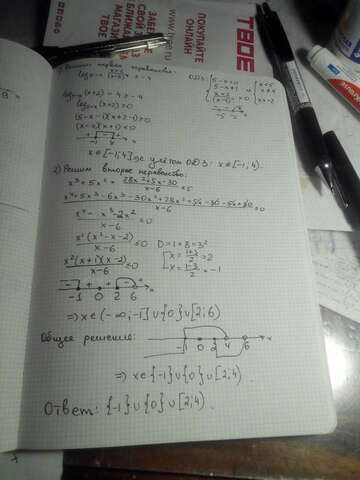 ПОКУПАЙТЕ
ОНЛАЙН
www.tvoe.ru
ТВОЕ
1) Решим первое неравенство:
ОДЗ:
5-x>0
5-x≠1
x<5
x≠4
x>-2
log₅₋ₓ(x+2)-4≥-4
log₅₋ₓ(x+2)≥0
(5-x-1)(x+2-1)≥0
(x-4)(x+1)≤0
-1 4 x
x∈[-1;4] с учётом ОДЗ: x∈[-1;4).
2) Решим второе неравенство:
x³+5x²+ 28x²+5x-30 / x-6 ≤5
x⁴+5x³-6x³-30x²+28x²+5x-30-5x+30 / x-6 ≤0
x⁴-x³-2x² / x-6 ≤0
x²(x²-x-2) / x-6 ≤0
D=1+8=3²
x=1+3/2=2
x=1-3/2=-1
x²(x+1)(x-2) / x-6 ≤0
-1 0 2 6 x
⇒ x∈(-∞;-1]∪{0}∪[2;6)
Общее решение:
-1 0 2 4 6 x
⇒ x∈{-1}∪{0}∪[2;4).
Ответ: {-1}∪{0}∪[2;4).